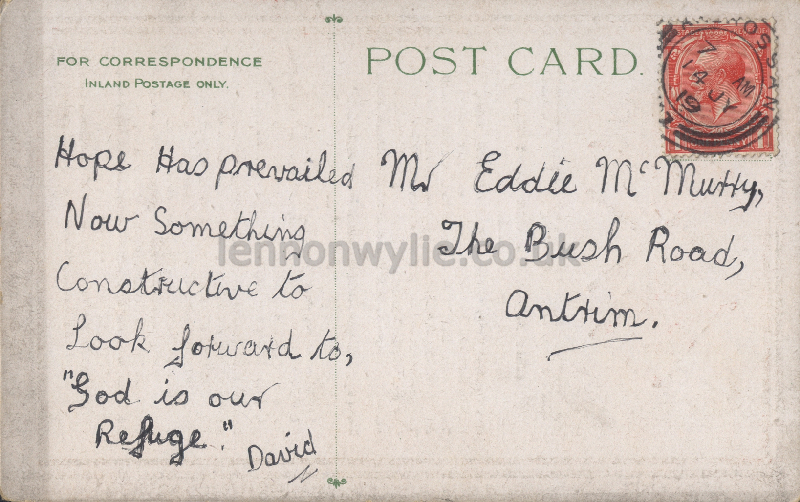 FOR CORRESPONDENCE
INLAND POSTAGE ONLY.
POST CARD.
Hope Has prevailed
Now Something
Constructive to
Look forward to,
"God is our
Refuge."
David
Mr Eddie McMurry,
The Bush Road,
Antrim.
lennonwylie.co.uk
7 M
14 JY
19